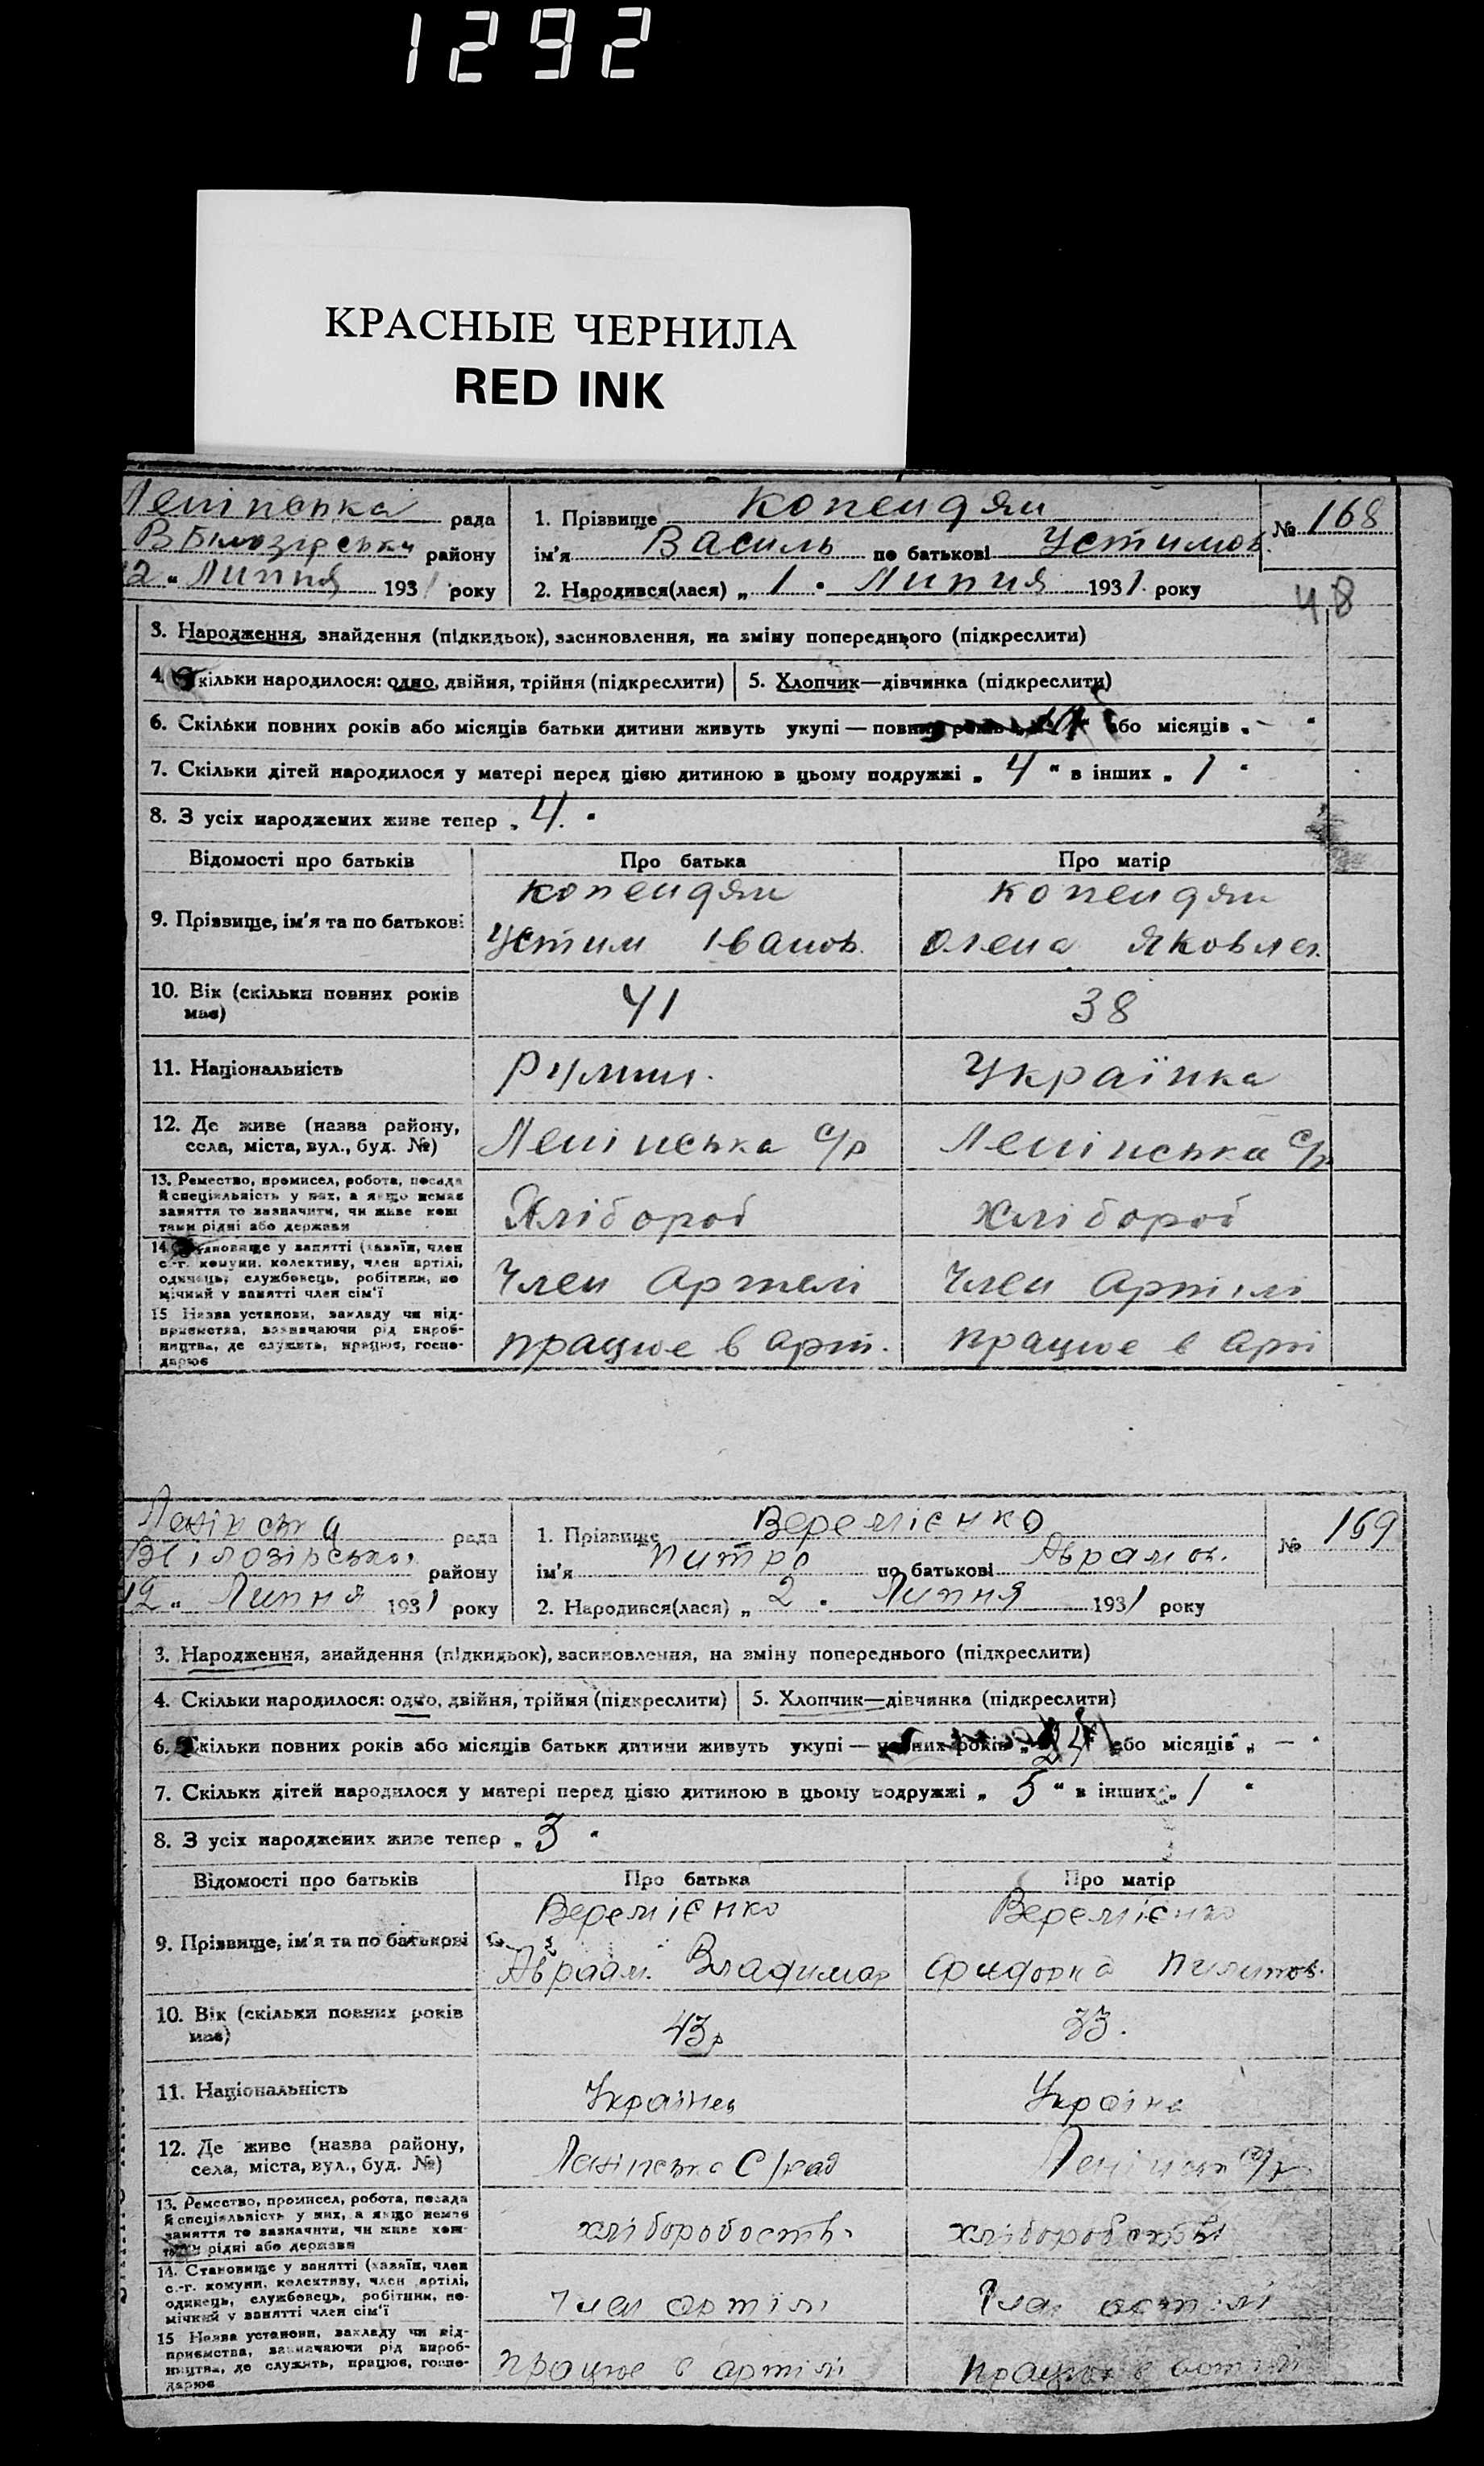 1292
КРАСНЫЕ ЧЕРНИЛА
RED INK
Ленінська рада
ВБілозірськи району
12 " Липня 1931 року
1. Прізвище Копендян
ім'я Василь по батькові Устимов.
2. Народився(лася) „ 1 " Липня 1931 року
№ 168
48
3. Народження, знайдення (підкидьок), засиновлення, на зміну попереднього (підкреслити)
4. Скільки народилося: одно, двійня, трійня (підкреслити) 5. Хлопчик—дівчинка (підкреслити)
6. Скільки повних років або місяців батьки дитини живуть укупі — повних років або місяців „ – "
7. Скільки дітей народилося у матері перед цією дитиною в цьому подружжі „ 4 " в інших „ 1 "
8. З усіх народжених живе тепер „ 4. "
Відомості про батьків Про батька Про матір
9. Прізвище, ім'я та по батькові
Копендян
Устим Іванов.
Копендян
Олена Яковлев.
10. Вік (скільки повних років має)
41
38
11. Національність
Румин.
Українка
12. Де живе (назва району,
села, міста, вул., буд. №)
Ленінська с/р
Ленінська с/р
13. Ремество, промисел, робота, посада
й спеціяльність у них, а якщо немає
заняття то зазначити, чи живе кош
тами рідні або держави
Хлібороб
Хлібороб
14. Становище у занятті (хазяїн, член
с.-г. комуни, колективу, член артілі,
одинець, службовець, робітник, по
мічний у занятті член сім'ї
Член Артелі
Член Артілі
15 Назва установи, закладу чи під-
приємства, зазначаючи рід вироб-
ництва, де служить, працює, госпо-
дарює
працює в арт.
працює в арт
Ленінська рада
ВБілозірської району
12 " Липня 1931 року
1. Прізвище Веремієнко
ім'я Питро по батькові Аврамов.
2. Народився(лася) „ 2 " Липня 1931 року
№ 169
3. Народження, знайдення (підкидьок), засиновлення, на зміну попереднього (підкреслити)
4. Скільки народилося: одно, двійня, трійня (підкреслити) 5. Хлопчик—дівчинка (підкреслити)
6. Скільки повних років або місяців батьки дитини живуть укупі — повних років „ або місяців „ — "
7. Скільки дітей народилося у матері перед цією дитиною в цьому подружжі „ 5 " в інших „ 1 "
8. З усіх народжених живе тепер „ 3 "
Відомості про батьків Про батька Про матір
9. Прізвище, ім'я та по батькові
Веремієнко
Авраам. Владимар
Веремієнко
10. Вік (скільки повних років має)
43р
33.
11. Національність
Українец
Україна
12. Де живе (назва району,
села, міста, вул., буд. №)
Ленінська С/рад
Ленінська с/р
13. Ремество, промисел, робота, посада
й спеціяльність у них, а якщо немає
заняття то зазначити, чи живе кош-
тами рідні або держави
хліборобость.
14. Становище у занятті (хазяїн, член
с.-г. комуни, колективу, член артілі,
одинець, службовець, робітник, по-
мічний у занятті член сім'ї
Член артілі
Член артілі
15 Назва установи, закладу чи під-
приємства, зазначаючи рід вироб-
ництва, де служить, працює, госпо-
дарює
працює в артілі
працює в артілі